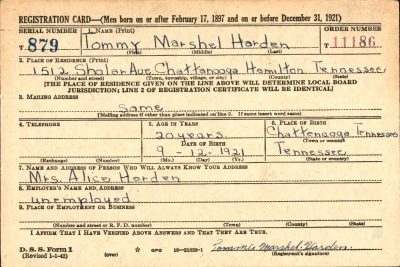 REGISTRATION CARD—(Men born on or after February 17, 1897 and on or before December 31, 1921)
SERIAL NUMBER 1. NAME (Print) ORDER NUMBER
T 879 Tommy Marshel Harden T 11186
(First) (Middle) (Last)
2. PLACE OF RESIDENCE (Print)
1512 Sholar Ave. Chattanooga Hamilton Tennessee
(Number and street) (Town, township, village, or city) (County) (State)
[THE PLACE OF RESIDENCE GIVEN ON THE LINE ABOVE WILL DETERMINE LOCAL BOARD
JURISDICTION; LINE 2 OF REGISTRATION CERTIFICATE WILL BE IDENTICAL]
3. MAILING ADDRESS
Same
[Mailing address if other than place indicated on line 2. If same insert word same]
4. TELEPHONE 5. AGE IN YEARS 6. PLACE OF BIRTH
20 years Chattanooga Tennessee
DATE OF BIRTH (Town or county)
9-12-1921 Tennessee
(Exchange) (Number) (Mo.) (Day) (Yr.) (State or country)
7. NAME AND ADDRESS OF PERSON WHO WILL ALWAYS KNOW YOUR ADDRESS
Mrs Alice Harden
8. EMPLOYER'S NAME AND ADDRESS
unemployed
9. PLACE OF EMPLOYMENT OR BUSINESS
(Number and street or R. F. D. number) (Town) (County) (State)
I AFFIRM THAT I HAVE VERIFIED ABOVE ANSWERS AND THAT THEY ARE TRUE.
D. S. S. Form 1 GPO 16—21630-1 Tommie Marshel Harden
(Revised 1-1-42) (over) (Registrant's signature)